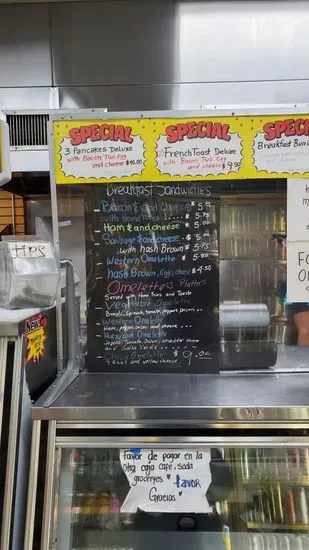 SPECIAL
3 Pancakes Deluxe
with Bacon Two Egg
and cheese $10.00
SPECIAL
French Toast Deluxe
with Bacon Two Egg
and cheese $9.50
SPEC
Breakfast Burri
Breakfast Sandwiches
Bacon Egg and cheese $5.
with home fries $5.75
Ham Egg and cheese $5.
Sausage Egg and cheese $5.
with hash Brown $5.75
Western Omelette $5.50
hash Brown, Egg, cheese $4.50
Omelettes Platters
Served with Home Fries and Toaste
Vegetable Omelette
Broccoli, Spinach, tomato, peppers, Onion
Western Omelette
Ham, pepper, onion and cheese
Mexican Omelette
Tomato, Onion, cheddar cheese
and Salsa Verde
Cheese Omelette $9.00
3 Egg and yellow cheese
TIPS
New
FO
OR
Favor de pagar en la
otra caja cafe, soda
groceryes Favor
Gracias